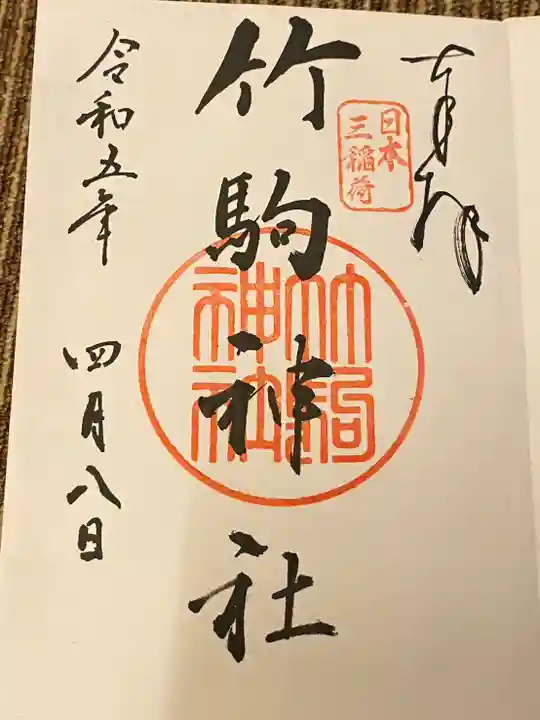 奉拝
日本
三稲荷
竹駒神社
竹駒
神社
令和五年 四月八日